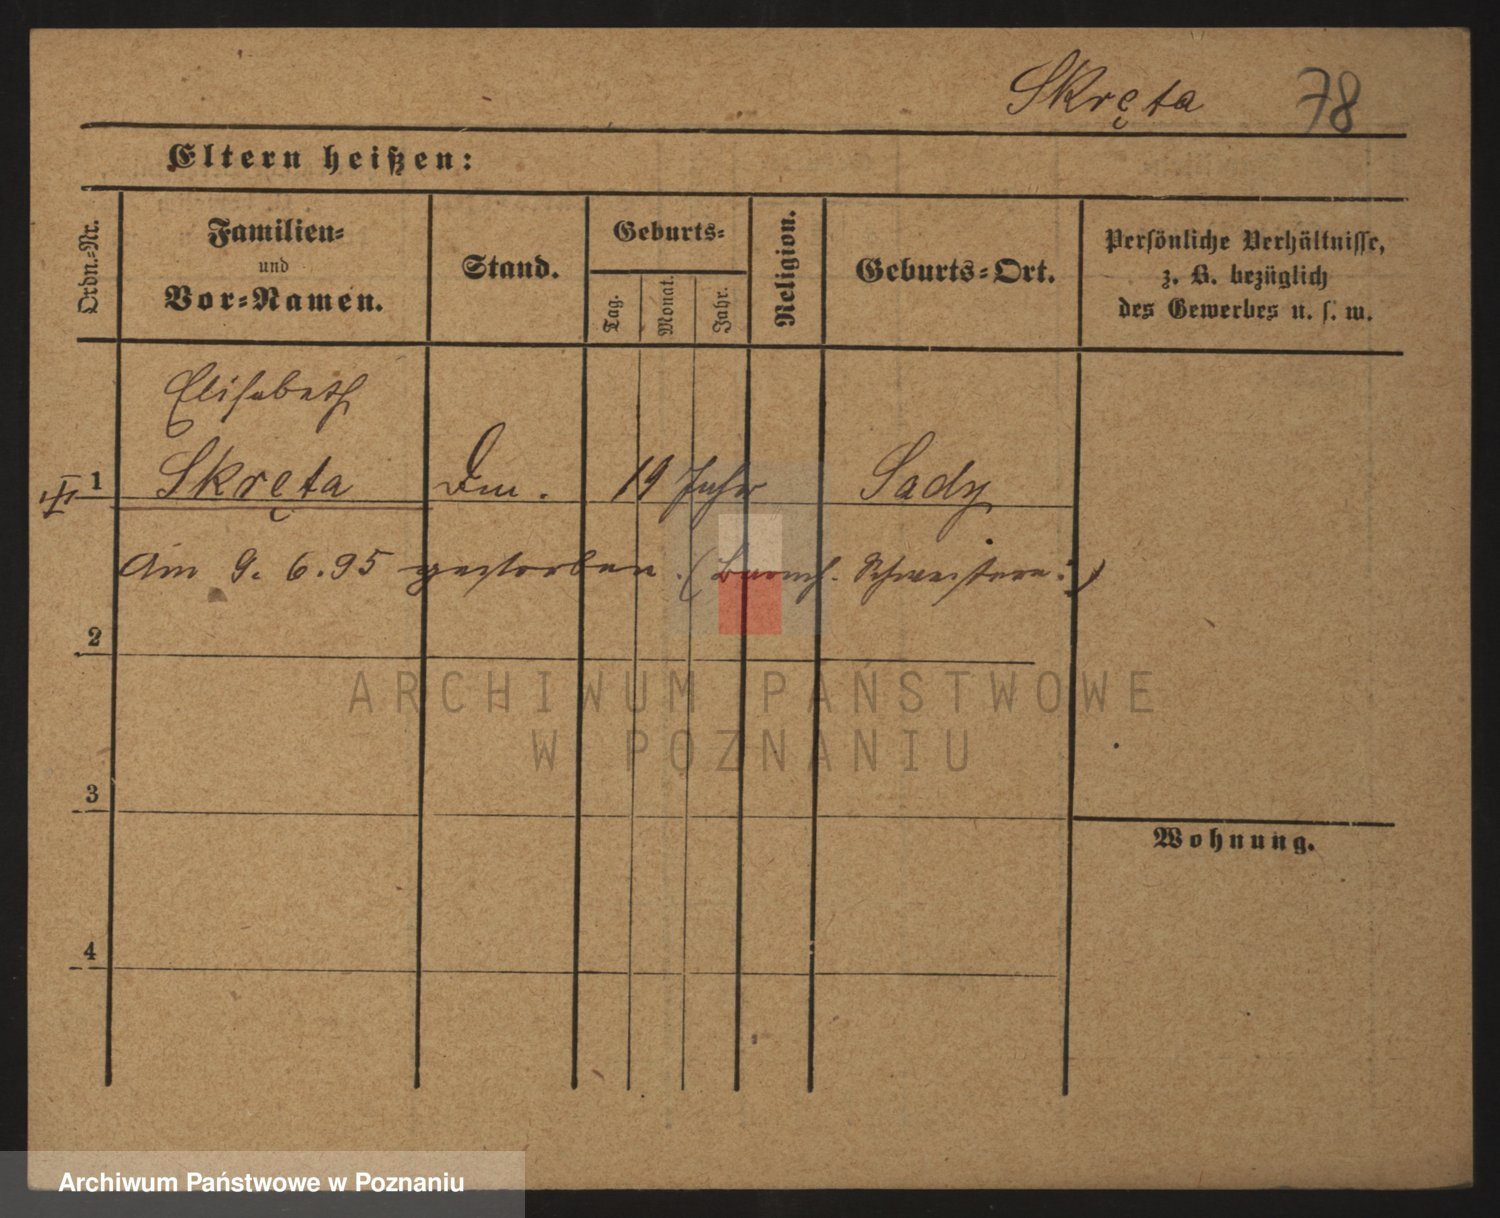 Skręta 78
Eltern heißen:
Ordn.-Nr.
Familien-
und
Vor-Namen.
Stand.
Geburts-
Tag.
Monat.
Jahr.
Religion.
Geburts-Ort.
Persönliche Verhältnisse,
z. B. bezüglich
des Gewerbes u. s. w.
Elisabeth
1 Skręta 19 Jahr Sady
Am 9. 6. 95 gestorben. (Barmh. Schwestern.)
2
ARCHIWUM PAŃSTWOWE
W POZNANIU
3
Wohnung.
4
Archiwum Państwowe w Poznaniu